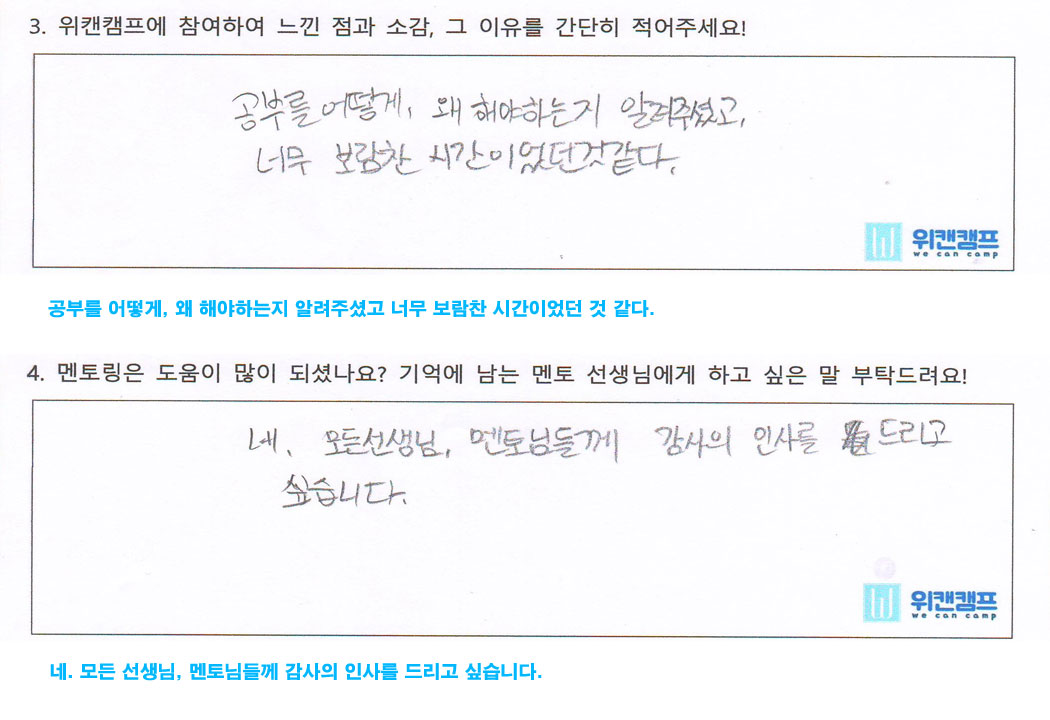 3. 위캔캠프에 참여하여 느낀 점과 소감, 그 이유를 간단히 적어주세요!
공부를 어떻게, 왜 해야하는지 알려주셨고,
너무 보람찬 시간이었던것같다.
위캔캠프
we can camp
공부를 어떻게, 왜 해야하는지 알려주셨고 너무 보람찬 시간이었던 것 같다.
4. 멘토링은 도움이 많이 되셨나요? 기억에 남는 멘토 선생님에게 하고 싶은 말 부탁드려요!
네. 모든선생님, 멘토님들께 감사의 인사를 드리고
싶습니다.
위캔캠프
we can camp
네. 모든 선생님, 멘토님들께 감사의 인사를 드리고 싶습니다.